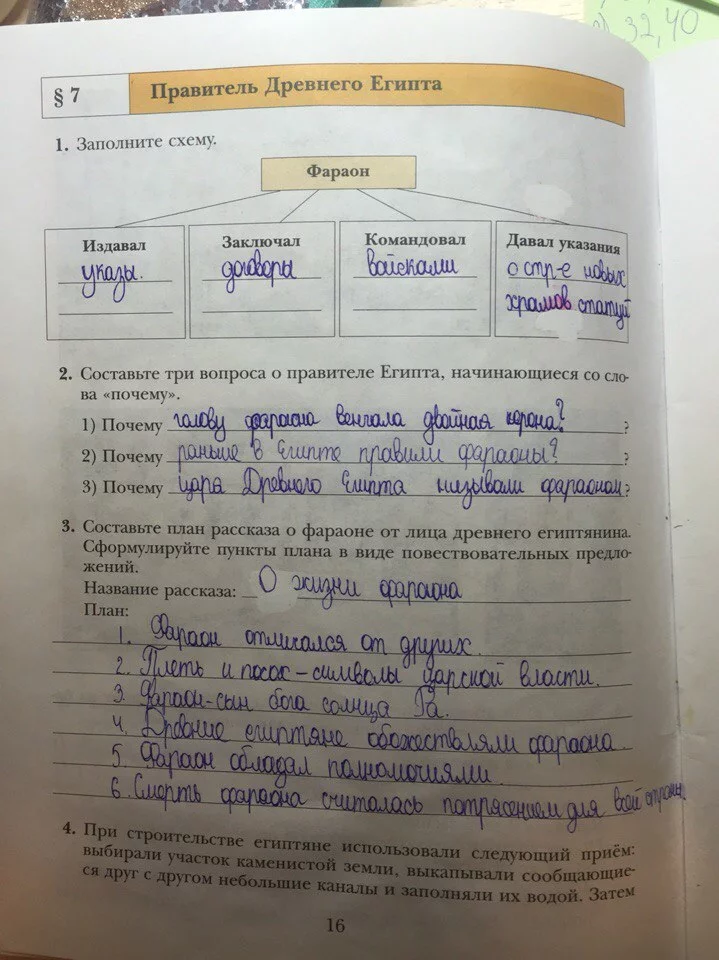 ) 32,40
§ 7
Правитель Древнего Египта
1. Заполните схему.
Фараон
Издавал
указы.
Заключал
договоры
Командовал
войсками
Давал указания
о стр-е новых
храмов статуй
2. Составьте три вопроса о правителе Египта, начинающиеся со сло-
ва «почему».
1) Почему голову фараона венчала двойная корона? ?
2) Почему раньше в Египте правили фараоны? ?
3) Почему царя Древнего Египта называли фараоном ?
3. Составьте план рассказа о фараоне от лица древнего египтянина.
Сформулируйте пункты плана в виде повествовательных предло-
жений.
Название рассказа: О жизни фараона
План:
1. Фараон отличался от других.
2. Плеть и посох – символы царской власти.
3. Фараон-сын бога солнца Ра.
4. Древние египтяне обожествляли фараона.
5. Фараон обладал полномочиями.
6. Смерть фараона считалась потрясением для всей страны.
4. При строительстве египтяне использовали следующий приём:
выбирали участок каменистой земли, выкапывали сообщающие-
ся друг с другом небольшие каналы и заполняли их водой. Затем
16